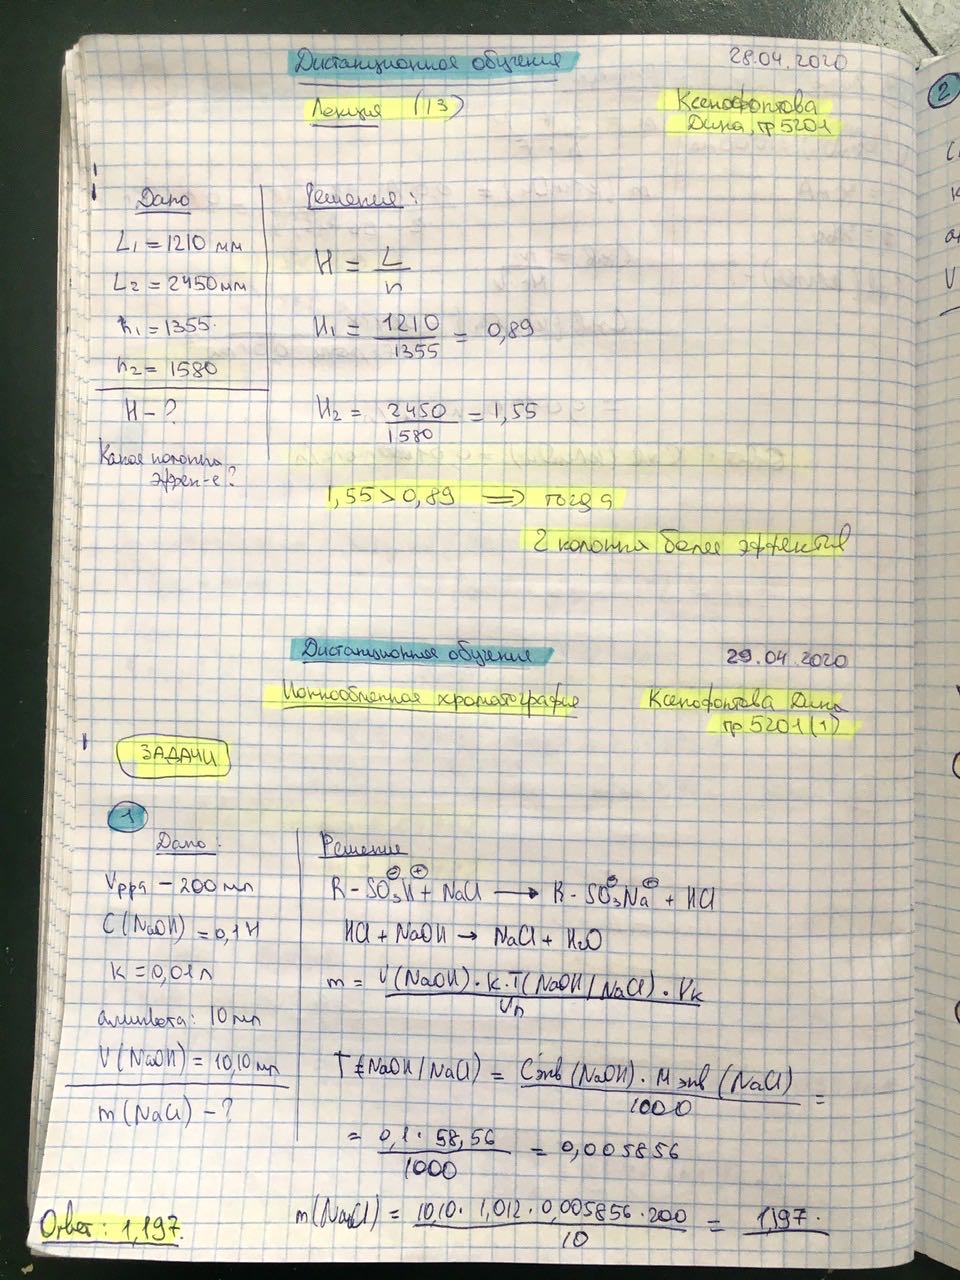 Дистанционное обучение
28.04.2020
Лекция (13)
Ксенофонтова
Дина, гр 5201
Дано
L1 = 1210 мм
L2 = 2450 мм
n1 = 1355
n2 = 1580
H - ?
Какая колонка
эффек-е?
Решение:
H = L / n
H1 = 1210 / 1355 = 0,89
H2 = 2450 / 1580 = 1,55
1,55 > 0,89 => тогда
2 колонка более эффектив
Дистанционное обучение
29.04.2020
Ионнообменная хроматография
Ксенофонтова Дина
гр 5201(1)
ЗАДАЧИ
1
Дано:
Vрра - 200 мл
C(NaOH) = 0,1 н
K = 0,01 л
аликвота: 10 мл
V(NaOH) = 10,10 мл
m(NaCl) - ?
Решение
R - SO3⊖H⊕ + NaCl → R - SO3⊖Na⊕ + HCl
HCl + NaOH → NaCl + H2O
m = V(NaOH) · K · T(NaOH/NaCl) · Vк / Vп
T(NaOH/NaCl) = Cэкв(NaOH) · Mэкв(NaCl) / 1000 =
= 0,1 · 58,56 / 1000 = 0,005856
m(NaCl) = 10,10 · 1,012 · 0,005856 · 200 / 10 = 1,197.
Ответ: 1,197.
2
V